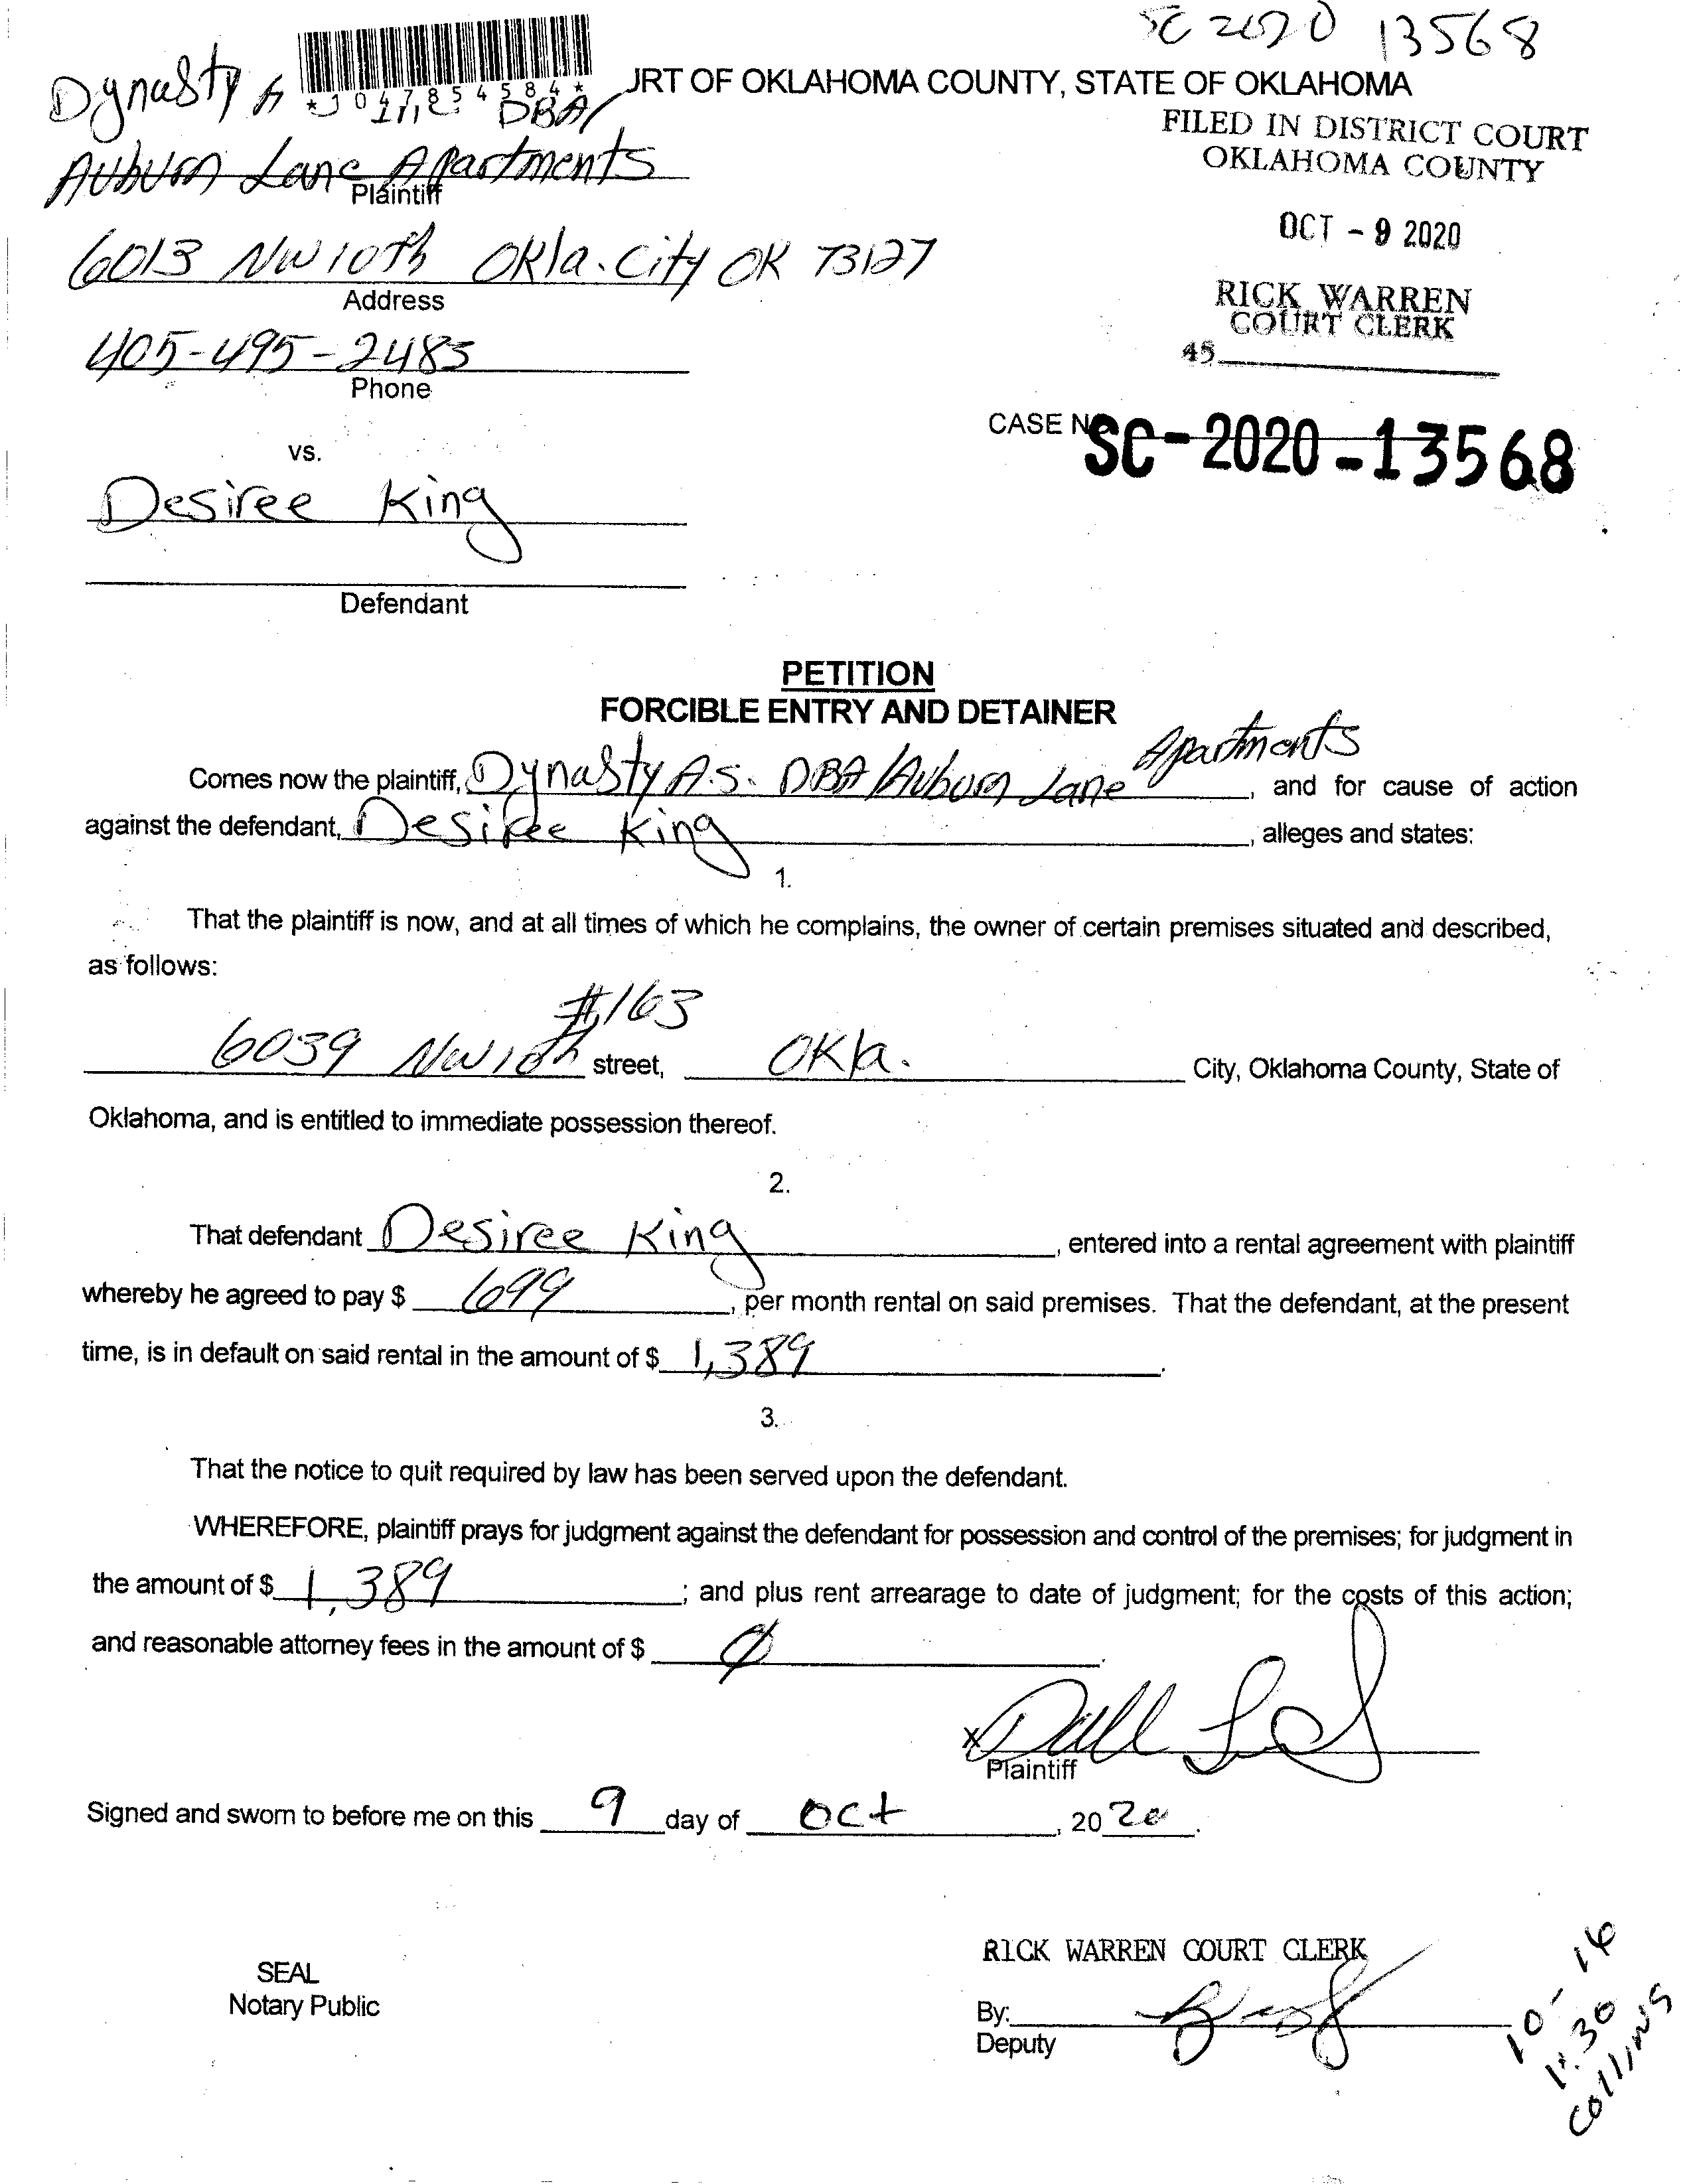 SC 2020 13568
*1047854584*
JRT OF OKLAHOMA COUNTY, STATE OF OKLAHOMA
Dynasty A Inc DBA/
Auburn Lane Apartments
Plaintiff
FILED IN DISTRICT COURT
OKLAHOMA COUNTY
OCT - 9 2020
RICK WARREN
COURT CLERK
45
6013 NW 10th Okla. City OK 73127
Address
405-495-2485
Phone
CASE NO. SC-2020-13568
vs.
Desiree King
Defendant
PETITION
FORCIBLE ENTRY AND DETAINER
Comes now the plaintiff, Dynasty A.S. DBA/Auburn Lane Apartments, and for cause of action
against the defendant, Desiree King, alleges and states:
1.
That the plaintiff is now, and at all times of which he complains, the owner of certain premises situated and described,
as follows:
#163
6039 NW 10th street, Okla. City, Oklahoma County, State of
Oklahoma, and is entitled to immediate possession thereof.
2.
That defendant Desiree King, entered into a rental agreement with plaintiff
whereby he agreed to pay $ 699, per month rental on said premises. That the defendant, at the present
time, is in default on said rental in the amount of $ 1,389.
3.
That the notice to quit required by law has been served upon the defendant.
WHEREFORE, plaintiff prays for judgment against the defendant for possession and control of the premises; for judgment in
the amount of $ 1,389; and plus rent arrearage to date of judgment; for the costs of this action;
and reasonable attorney fees in the amount of $ Ø.
X
Plaintiff
Signed and sworn to before me on this 9 day of Oct, 2020.
SEAL
Notary Public
RICK WARREN COURT CLERK
By:
Deputy
10-16
1:30
Collins